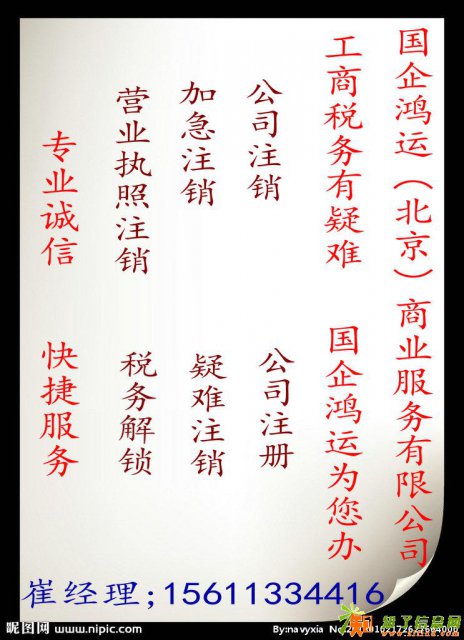 国企鸿运（北京）商业服务有限公司
工商税务有疑难
国企鸿运为您办
公司注销
公司注册
加急注销
疑难注销
营业执照注销
税务解锁
专业诚信
快捷服务
崔经理;15611334416
昵图网 www.nipic.com
By:navyxia